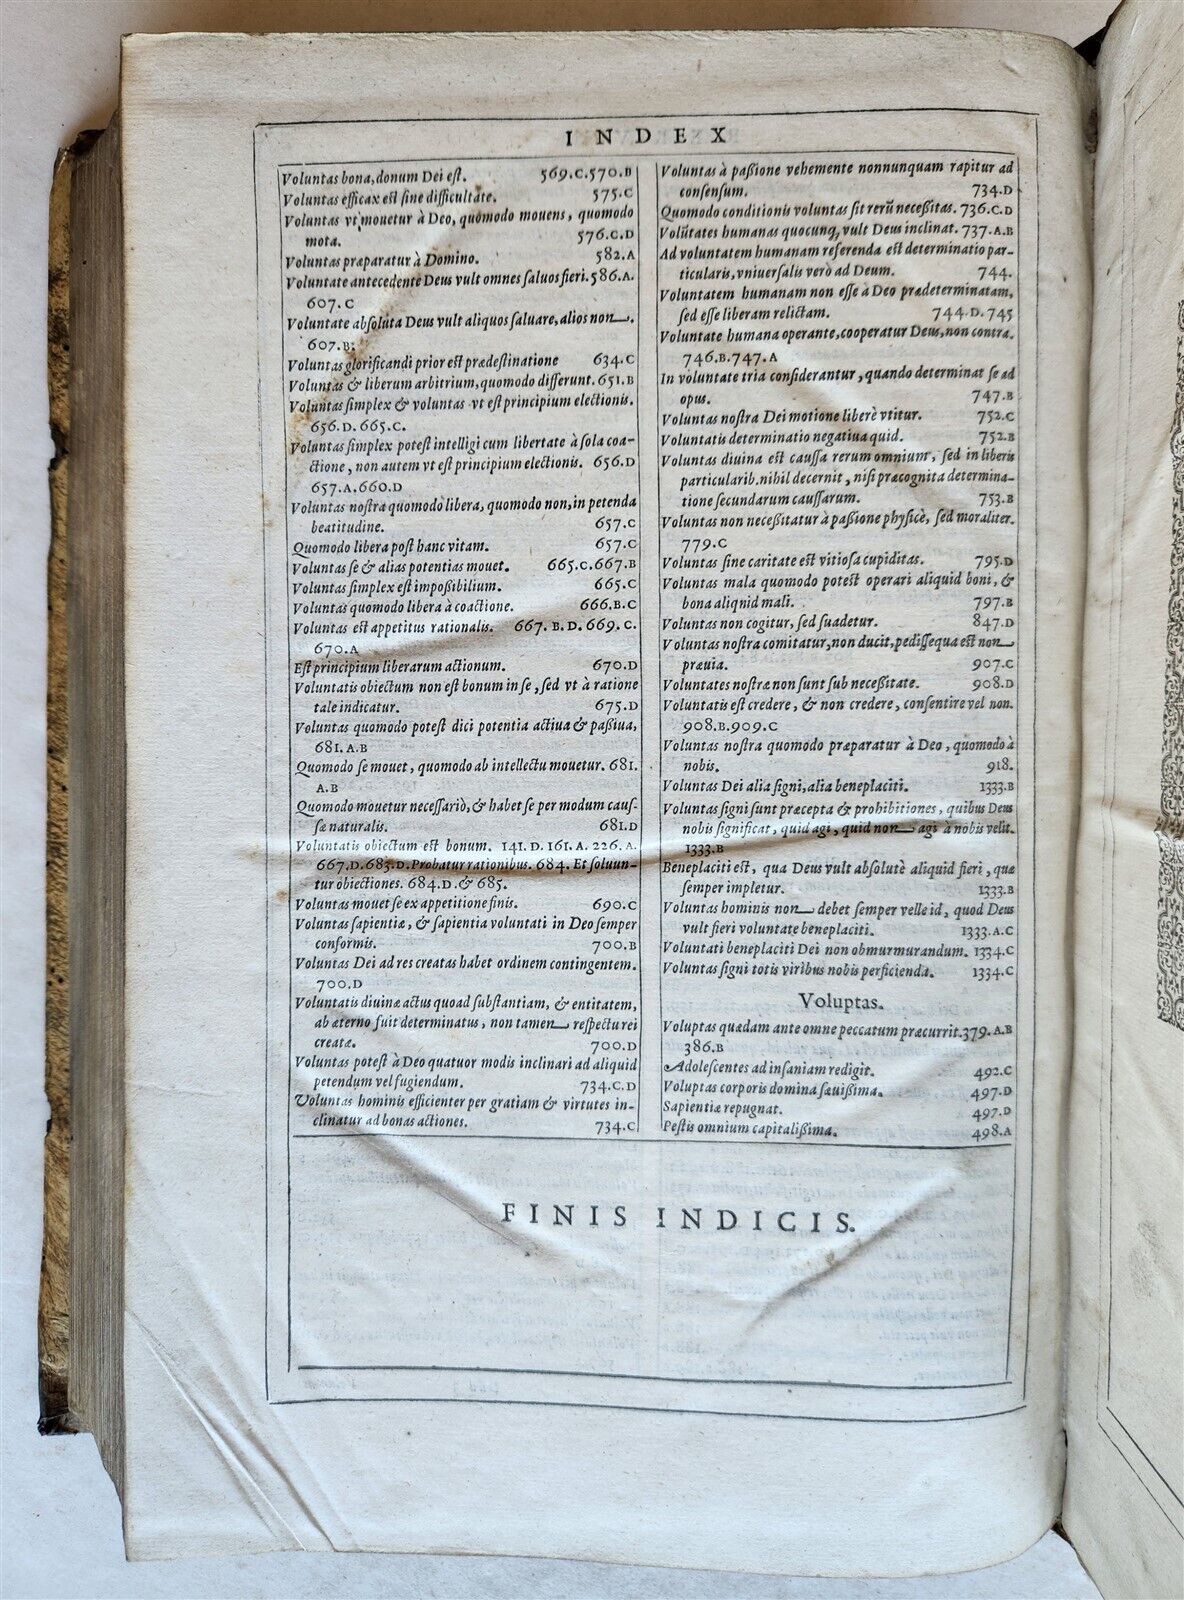 INDEX
Voluntas bona, donum Dei est. 569.C.570.B
Voluntas efficax est sine difficultate. 575.C
Voluntas vt mouetur à Deo, quomodo mouens, quomodo
mota. 576.C.D
Voluntas præparatur à Domino. 582.A
Voluntate antecedente Deus vult omnes saluos fieri. 586.A.
607.C
Voluntate absoluta Deus vult aliquos saluare, alios non.
607.B.
Voluntas glorificandi prior est prædestinatione 634.C
Voluntas & liberum arbitrium, quomodo differunt. 651.B
Voluntas simplex & voluntas vt est principium electionis.
656.D. 665.C.
Voluntas simplex potest intelligi cum libertate à sola coa-
ctione, non autem vt est principium electionis. 656.D
657.A.660.D
Voluntas nostra quomodo libera, quomodo non, in petenda
beatitudine. 657.C
Quomodo libera post hanc vitam. 657.C
Voluntas se & alias potentias mouet. 665.C.667.B
Voluntas simplex est impoßibilium. 665.C
Voluntas quomodo libera à coactione. 666.B.C
Voluntas est appetitus rationalis. 667. B. D. 669. C.
670.A
Est principium liberarum actionum. 670.D
Voluntatis obiectum non est bonum in se, sed vt à ratione
tale indicatur. 675.D
Voluntas quomodo potest dici potentia actiua & paßiua,
681.A.B
Quomodo se mouet, quomodo ab intellectu mouetur. 681.
A.B
Quomodo mouetur necessariò, & habet se per modum caus-
sæ naturalis. 681.D
Voluntatis obiectum est bonum. 141. D. 161. A. 226. A.
667.D.683.D. Probatur rationibus. 684. Et soluun-
tur obiectiones. 684.D.& 685.
Voluntas mouet se ex appetitione finis. 690.C
Voluntas sapientiæ, & sapientia voluntati in Deo semper
conformis. 700.B
Voluntas Dei ad res creatas habet ordinem contingentem.
700.D
Voluntatis diuinæ actus quoad substantiam, & entitatem,
ab æterno fuit determinatus, non tamen respectu rei
creatæ. 700.D
Voluntas potest à Deo quatuor modis inclinari ad aliquid
petendum vel fugiendum. 734.C.D
Voluntas hominis efficienter per gratiam & virtutes in-
clinatur ad bonas actiones. 734.C
Voluntas à paßione vehemente nonnunquam rapitur ad
consensum. 734.D
Quomodo conditionis voluntas sit rerū neceßitas. 736.C.D
Volūtates humanas quocunq, vult Deus inclinat. 737.A.B
Ad voluntatem humanam referenda est determinatio par-
ticularis, vniuersalis verò ad Deum. 744.
Voluntatem humanam non esse à Deo prædeterminatam,
sed esse liberam relictam. 744.D.745
Voluntate humana operante, cooperatur Deus, non contra.
746.B.747.A
In voluntate tria considerantur, quando determinat se ad
opus. 747.B
Voluntas nostra Dei motione liberè vtitur. 752.C
Voluntatis determinatio negatiua quid. 752.B
Voluntas diuina est caussa rerum omnium, sed in liberis
particularib. nihil decernit, nisi præcognita determina-
tione secundarum caussarum. 753.B
Voluntas non neceßitatur à paßione physicè, sed moraliter.
779.C
Voluntas sine caritate est vitiosa cupiditas. 795.D
Voluntas mala quomodo potest operari aliquid boni, &
bona aliqnid mali. 797.B
Voluntas non cogitur, sed suadetur. 847.D
Voluntas nostra comitatur, non ducit, pedissequa est non
præuia. 907.C
Voluntates nostræ non sunt sub neceßitate. 908.D
Voluntatis est credere, & non credere, consentire vel non.
908.B.909.C
Voluntas nostra quomodo præparatur à Deo, quomodo à
nobis. 918.
Voluntas Dei alia signi, alia beneplaciti. 1333.B
Voluntas signi sunt præcepta & prohibitiones, quibus Deus
nobis significat, quid agi, quid non agi à nobis velit.
1333.B
Beneplaciti est, qua Deus vult absolutè aliquid fieri, quæ
semper impletur. 1333.B
Voluntas hominis non debet semper velle id, quod Deus
vult fieri voluntate beneplaciti. 1333.A.C
Voluntati beneplaciti Dei non obmurmurandum. 1334.C
Voluntas signi totis viribus nobis perficienda. 1334.C
Voluptas.
Voluptas quædam ante omne peccatum præcurrit. 379.A.B
386.B
Adolescentes ad insaniam redigit. 492.C
Voluptas corporis domina sæuißima. 497.D
Sapientiæ repugnat. 497.D
Pestis omnium capitalißima. 498.A
FINIS INDICIS.